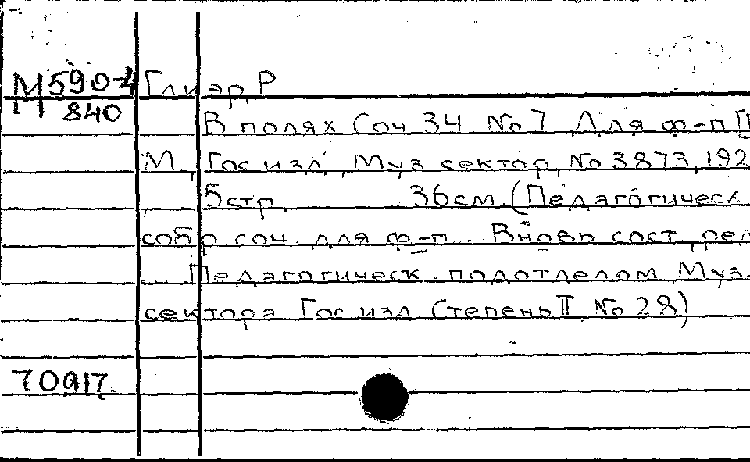 М590-4 Глиэр, Р
840
В полях Соч 34 No 7 Для ф-п
М., Гос изл, Муз сектор, No 3873, 192
5 стр, 36 см. (Педагогическ
собр соч. для ф-п. Вновь сост, ред
Педагогическ. подотделом Муз.
сектора Гос изл Степень II No 28)
70917.